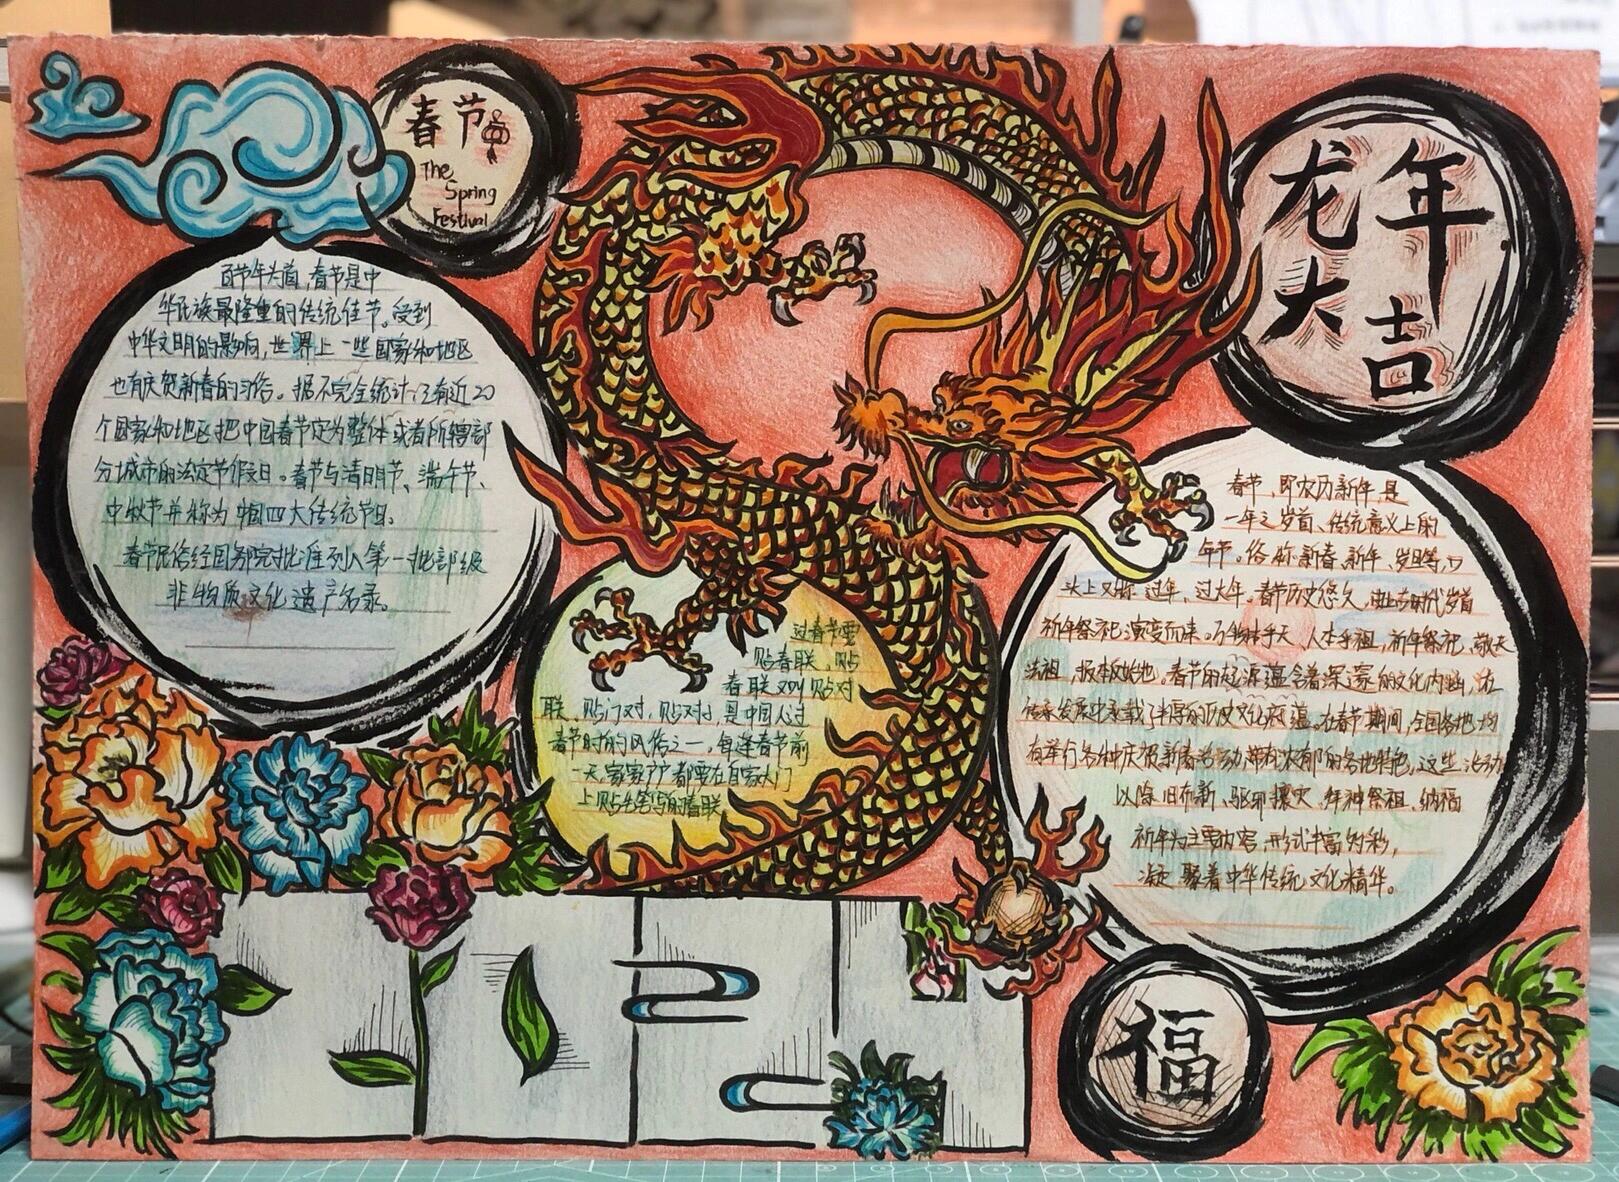 春节
The
Spring
Festival
龙年
大吉
百节年为首,春节是中
华民族最隆重的传统佳节。受到
中华文明的影响,世界上一些国家和地区
也有庆贺新春的习俗。据不完全统计,已有近20
个国家和地区把中国春节定为整体或者所辖部
分城市的法定节假日。春节与清明节、端午节、
中秋节并称为中国四大传统节日。
春节民俗经国务院批准列入第一批国家级
非物质文化遗产名录。
过春节要
贴春联,贴
春联又叫贴对
联、贴门对,贴对对,是中国人过
春节时的风俗之一,每逢春节前
一天,家家户户都要在自家大门
上贴红笔写的春联
春节,即农历新年,是
一年之岁首、传统意义上的
年节。俗称新春、新年、岁旦等,口
头上又称过年、过大年。春节历史悠久,由上古时代岁首
祈年祭祀演变而来。万物本乎天、人本乎祖,祈年祭祀、敬天
法祖,报本反始也。春节的起源蕴含着深邃的文化内涵,在
传承发展中承载了丰厚的历史文化底蕴。在春节期间,全国各地均
有举行各种庆贺新春活动,带有浓郁的各地特色,这些活动
以除旧布新、驱邪攘灾、拜神祭祖、纳福
祈年为主要内容,形式丰富多彩,
凝聚着中华传统文化精华。
福